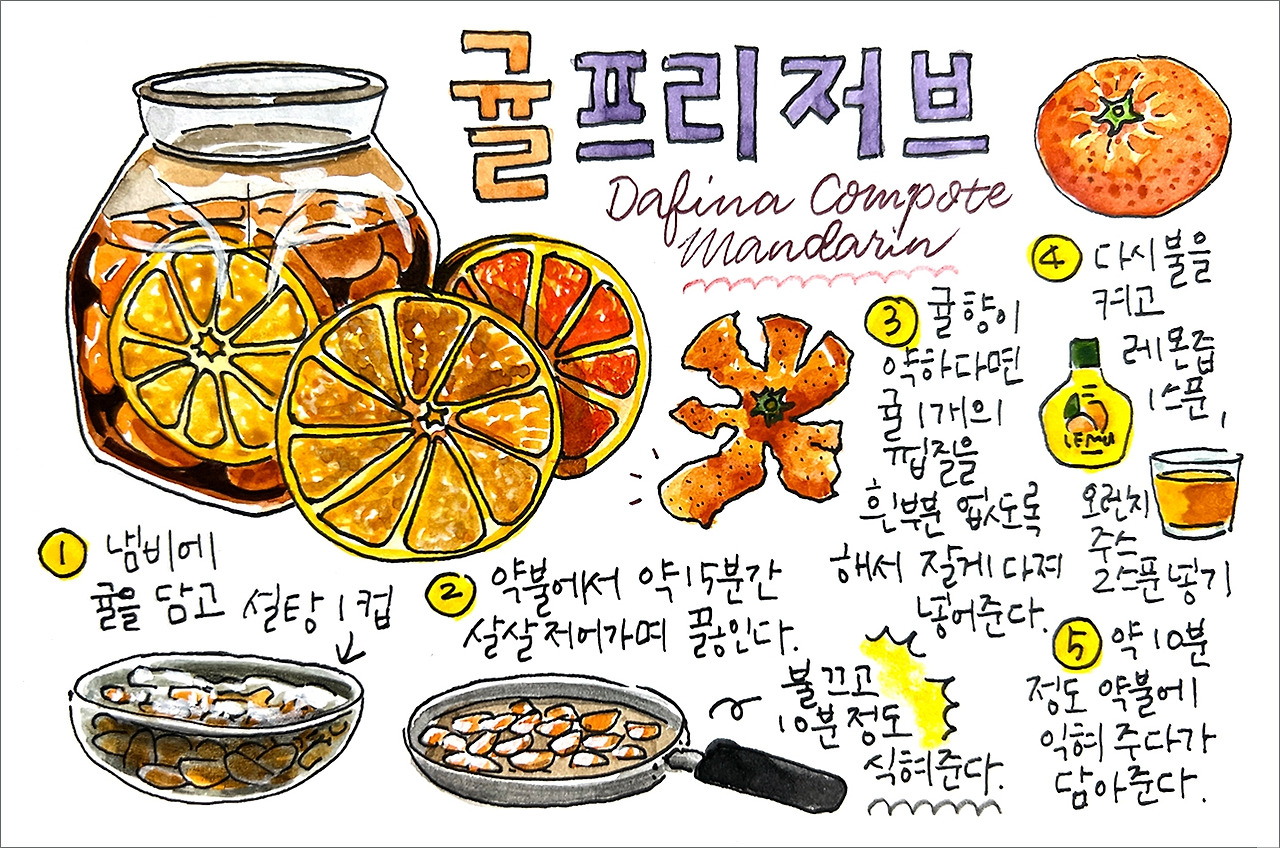 귤프리저브
Dafina Compote
Mandarin
1 냄비에
귤을 담고 설탕 1컵
2 약불에서 약 15분간
살살 저어가며 끓인다.
불 끄고
10분 정도
식혀준다.
3 귤향이
약하다면
귤 1개의
껍질을
흰부분 없도록
해서 잘게 다져
넣어준다.
4 다시 불을
켜고
레몬즙
1스푼,
LEMO
오렌지
주스
2스푼 넣기
5 약 10분
정도 약불에
익혀 주다가
담아준다.